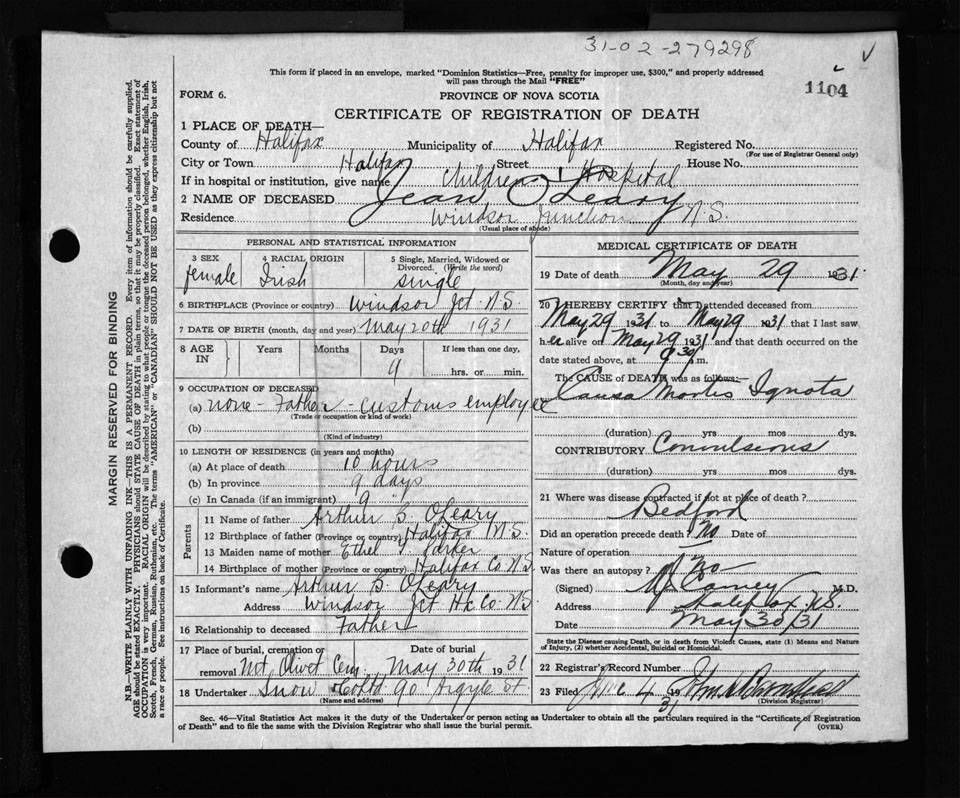 31-02-279298
This form if placed in an envelope, marked "Dominion Statistics—Free, penalty for improper use, $300," and properly addressed
will pass through the Mail "FREE"
1104
FORM 6.
PROVINCE OF NOVA SCOTIA
CERTIFICATE OF REGISTRATION OF DEATH
1 PLACE OF DEATH—
County of Halifax Municipality of Halifax Registered No.
(For use of Registrar General only)
City or Town Halifax Street House No.
If in hospital or institution, give name Childrens Hospital
2 NAME OF DECEASED Jean O'Leary
Residence Windsor Junction N.S.
(Usual place of abode)
PERSONAL AND STATISTICAL INFORMATION
3 SEX 4 RACIAL ORIGIN 5 Single, Married, Widowed or
Divorced. (Write the word)
female Irish single
6 BIRTHPLACE (Province or country) Windsor Jct. N.S.
7 DATE OF BIRTH (month, day and year) May 20th 1931
8 AGE IN Years Months Days If less than one day,
9 hrs. or min.
9 OCCUPATION OF DECEASED
(a) none - Father - customs employee
(Trade or occupation or kind of work)
(b)
(Kind of industry)
10 LENGTH OF RESIDENCE (in years and months)
(a) At place of death 10 hours
(b) In province 9 days
(c) In Canada (if an immigrant) 9
Parents
11 Name of father Arthur B. O'Leary
12 Birthplace of father (Province or country) Halifax N.S.
13 Maiden name of mother Ethel Parker
14 Birthplace of mother (Province or country) Halifax Co. N.S.
15 Informant's name Arthur B. O'Leary
Address Windsor Jct Hx. Co. N.S.
16 Relationship to deceased Father
17 Place of burial, cremation or removal Date of burial
Mt. Olivet Cem. May 30th 1931
18 Undertaker Snow & Co Ltd 90 Argyle St
(Name and address)
MEDICAL CERTIFICATE OF DEATH
19 Date of death May 29 1931
(Month, day and year)
20 I HEREBY CERTIFY that I attended deceased from
May 29 1931 to May 29 1931 that I last saw
her alive on May 29 1931 and that death occurred on the
date stated above, at 9 30 .m.
The CAUSE of DEATH was as follows:—
Causa Mortis Ignota
(duration) yrs mos dys.
CONTRIBUTORY Convulsions
(duration) yrs mos dys.
21 Where was disease contracted if not at place of death?
Bedford
Did an operation precede death? No Date of
Nature of operation
Was there an autopsy? No
(Signed) Carney M.D.
Address Halifax N.S.
Date May 30/31
State the Disease causing Death, or in death from Violent Causes, state (1) Means and Nature
of Injury, (2) whether Accidental, Suicidal or Homicidal.
22 Registrar's Record Number
23 Filed June 4 1931
(Division Registrar)
Sec. 46—Vital Statistics Act makes it the duty of the Undertaker or person acting as Undertaker to obtain all the particulars required in the "Certificate of Registration
of Death" and to file the same with the Division Registrar who shall issue the burial permit.
(OVER)
MARGIN RESERVED FOR BINDING
N.B.—WRITE PLAINLY WITH UNFADING INK—THIS IS A PERMANENT RECORD. Every item of information should be carefully supplied.
AGE should be stated EXACTLY. PHYSICIANS should STATE CAUSE OF DEATH in plain terms, so that it may be properly classified. Exact statement of
OCCUPATION is very important. RACIAL ORIGIN will be described by stating to what people or tongue the deceased person belonged, whether English, Irish,
Scotch, French, German, Russian, Ruthenian, etc. The terms "AMERICAN" or "CANADIAN" SHOULD NOT BE USED as they express citizenship but not
a race or people. See instructions on back of Certificate.